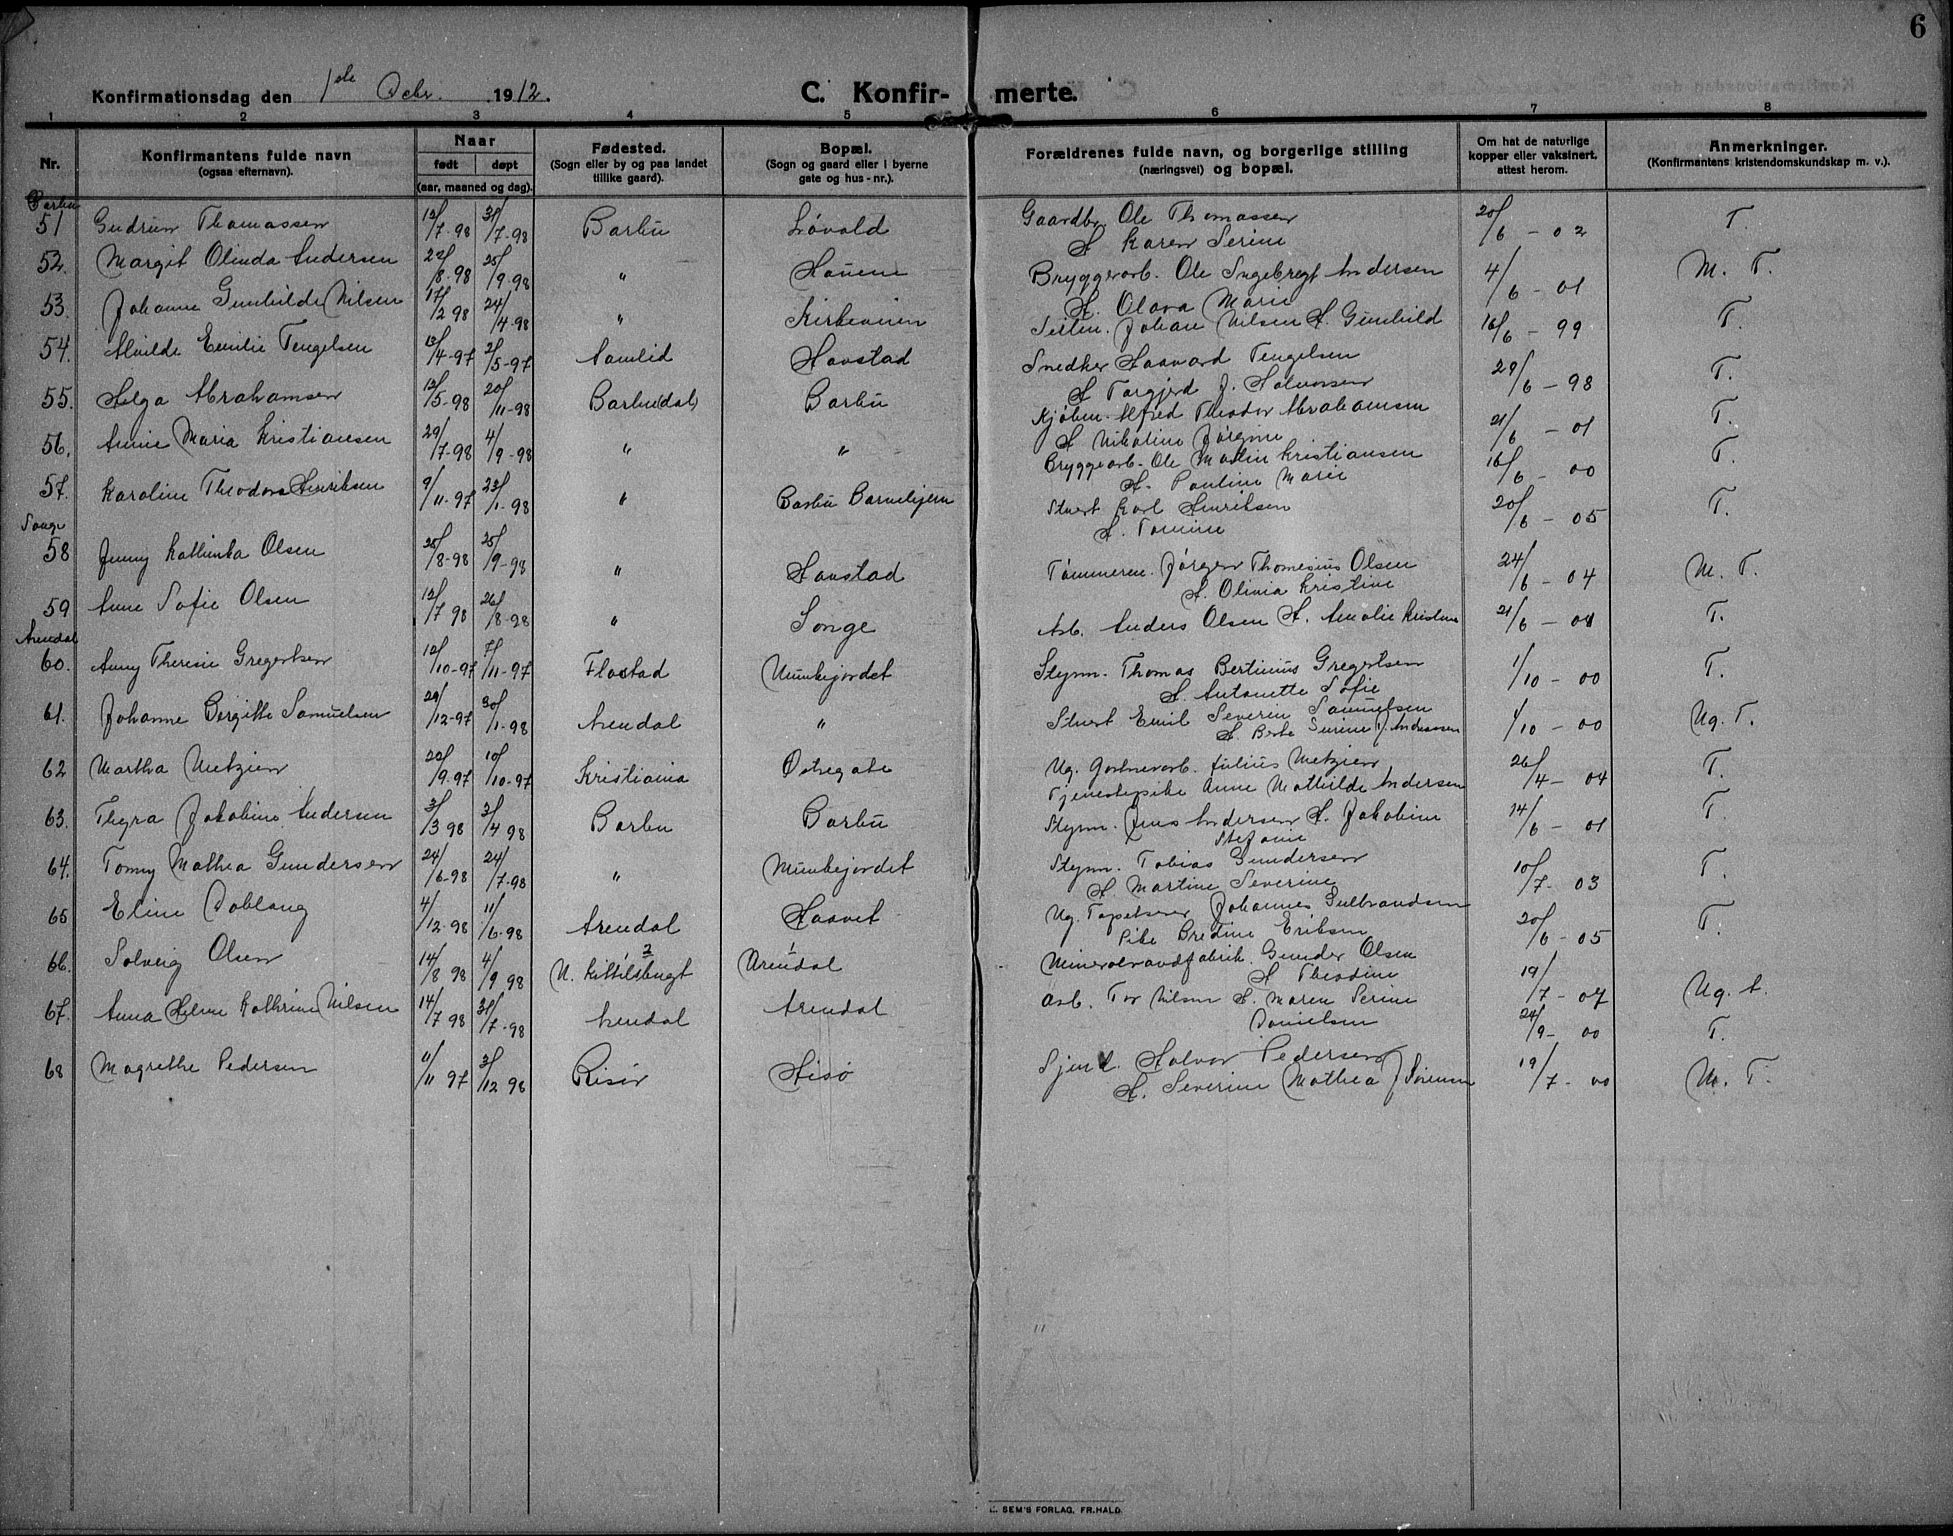 6
Konfirmationsdag den 1ste Octbr. 1912. C. Konfir- merte.
1 2 3 4 5 6 7 8
Nr. Konfirmantens fulde navn (ogsaa efternavn). Naar født døpt (aar, maaned og dag). Fødested. (Sogn eller by og paa landet tillike gaard). Bopæl. (Sogn og gaard eller i byerne gate og hus-nr.). Forældrenes fulde navn, og borgerlige stilling (næringsvei) og bopæl. Om hat de naturlige kopper eller vaksinert, attest herom. Anmerkninger. (Konfirmantens kristendomskundskap m. v.).
Barbu
51 Gudrun Thomassen 12/7-98 31/7-98 Barbu Løvold Gaardbr. Ole Thomassen 20/6-02 T.
H. Karen Serine
52. Margit Olinda Andersen 22/8-98 25/9-98 " Hauen Bryggearb. Ole Ingebregt Andersen 4/6-01 M. T.
H. Olava Marie
53. Johanne Gunhilde Nilsen 17/2 98 24/4-98 " Kirkeveien Johan Nilsen H. Gunhild 16/6-99 T.
54. Alvilde Emilie Tengelsen 13/4-97 2/5-97 Aamlid Havstad Snedker Haavard Tengelsen 29/6-98 T.
H. Torgjerd J. Halvorsen
55. Helga Abrahamsen 12/5-98 20/11-98 Barbudal Barbu Kjøbm. Alfred Theodor Abrahamsen 21/6-01 T.
H. Nikoline Jørgine
56. Annie Maria Kristiansen 29/7-98 4/9-98 " " Bryggearb. Ole Martin Kristiansen 16/6-00 T.
H. Pauline Marie
57. Karoline Theodora Henriksen 9/11-97 23/1-98 " Barbu Barnehjem Stuert Karl Henriksen 20/6-05 T.
H. Tomine
Songe
58 Jenny Kathinka Olsen 25/8-98 25/9-98 " Havstad Tømmerm. Jørgen Thomesius Olsen 24/6-04 M. T.
H. Olivia Kristine
59 Anne Sofie Olsen 12/7 98 26/8-98 " Songe Arb. Anders Olsen H. Amalie Kristine 21/6-01 T.
Arendal
60. Anny Therese Gregertsen 12/10-97 7/11-97 Flostad Munkejordet Styrm. Thomas Bertinius Gregertsen 1/10-00 T.
H. Antonette Sofie
61. Johanne Birgitte Samuelsen 29/12-97 30/1-98 Arendal " Stuert Emil Severin Samuelsen 1/10-00 Ug. T.
H. Berte Serine J. Andreassen
62 Martha Metzien 20/9-97 10/10-97 Kristiania Østregate Ug. Gartnerarb. Julius Metzien 26/4-04 T.
Tjenestepike Anne Mathilde Andersen
63. Thyra Jakobine Andersen 3/3 98 3/4 98 Barbu Barbu Styrm. Jens Andersen H. Jakobine 14/6-01 T.
Stefanie
64. Tomy Mathea Gundersen 24/6-98 24/7-98 " Munkejordet Styrm. Tobias Gundersen 10/7-03 T.
H. Martine Severine
65 Eline Doblaug 4/12-98 11/6-98 Arendal Haavet Ug. Tapetserer Johannes Gulbrandsen 20/6-05 T.
Pike Bredine Eriksen
66. Solveig Olsen 14/8 98 4/9 98 N. Kittelsbugt 2 Arendal 1 Mineralvandfabrik. Gunder Olsen 19/7-07 Ug. t.
H. Theodine
67. Anna Helene Kathrine Nilsen 14/7 98 31/7-98 Arendal Arendal Arb. Tor Nilsen H. Maren Serine 24/9-00 T.
Danielsen
68 Magrethe Pedersen 11/11 97 3/12 98 Risør Hisø Sjøm. Halvor Pedersen 19/7-00 M. T.
H. Severine Mathea J. Sørensen
E. SEM'S FORLAG, FR.HALD